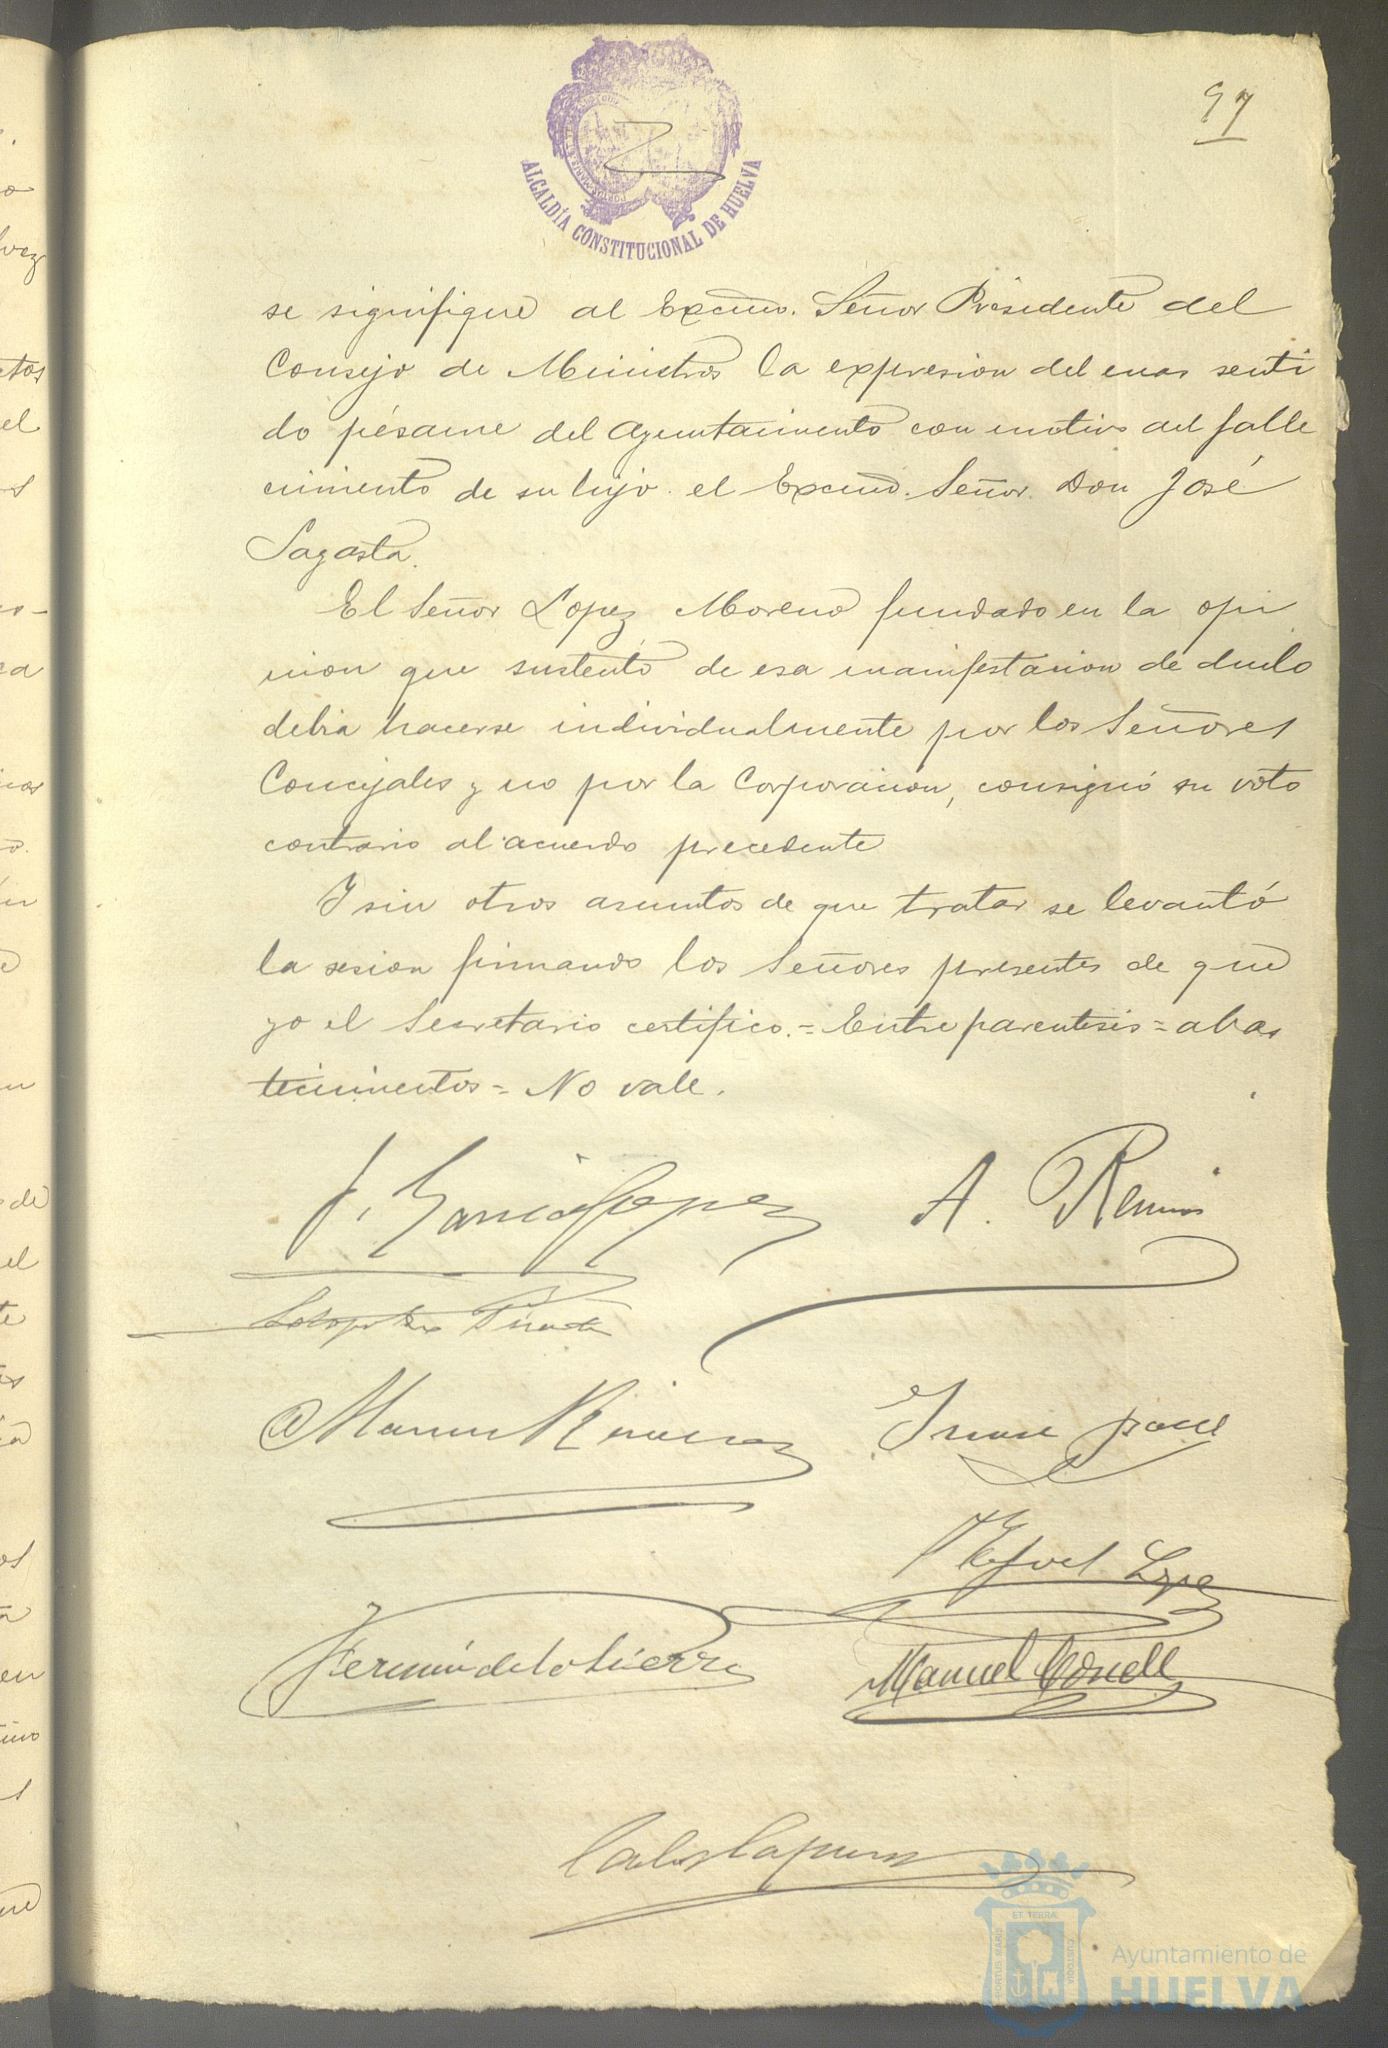 97
ALCALDÍA CONSTITUCIONAL DE HUELVA
se signifique al Excmo. Señor Presidente del
Consejo de Ministros la expresion del mas senti
do pésame del Ayuntamiento con motivo del falle
cimiento de su hijo el Excmo. Señor Don José
Sagasta.
El Señor Lopez Moreno fundado en la opi
nion que sustentó de esa manifestacion de duelo
debia hacerse individualmente por los Señores
Concejales y no por la Corporacion, consignó su voto
contrario al acuerdo precedente
Y sin otros asuntos de que tratar se levantó
la sesion firmando los Señores presentes de que
yo el Secretario certifico.=Entre parentesis=abas
tecimientos=No vale.
J. Garcia Lopez
A.
Manuel
Miguel Lopez
Fermín de la Sierra
Manuel
ET TERRA
PORTUS MARIS
CUSTODIA
Ayuntamiento de
HUELVA